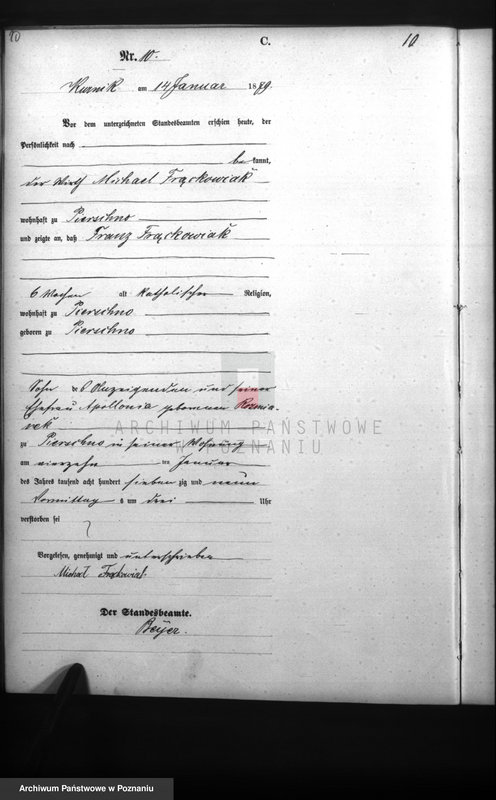 10
C.
10
Nr. 10.
Kurnik am 14 Januar 1879.
Vor dem unterzeichneten Standesbeamten erschien heute, der
Persönlichkeit nach
be kannt,
der Wirth Michael Frąckowiak
wohnhaft zu Pierschno
und zeigte an, daß Franz Frąckowiak
6 Wochen alt katholischer Religion,
wohnhaft zu Pierschno
geboren zu Pierschno
Sohn des Anzeigenden und seiner
Ehefrau Apollonia geborenen
zu Pierschno in seiner Wohnung
am vierzehn ten Januar
des Jahres tausend acht hundert sieben zig und neun
Vormittag s um drei Uhr
verstorben sei
Vorgelesen, genehmigt und unterschrieben
Michał Frąckowiak
Der Standesbeamte.
Beyer.
ARCHIWUM PAŃSTWOWE
W POZNANIU
Archiwum Państwowe w Poznaniu